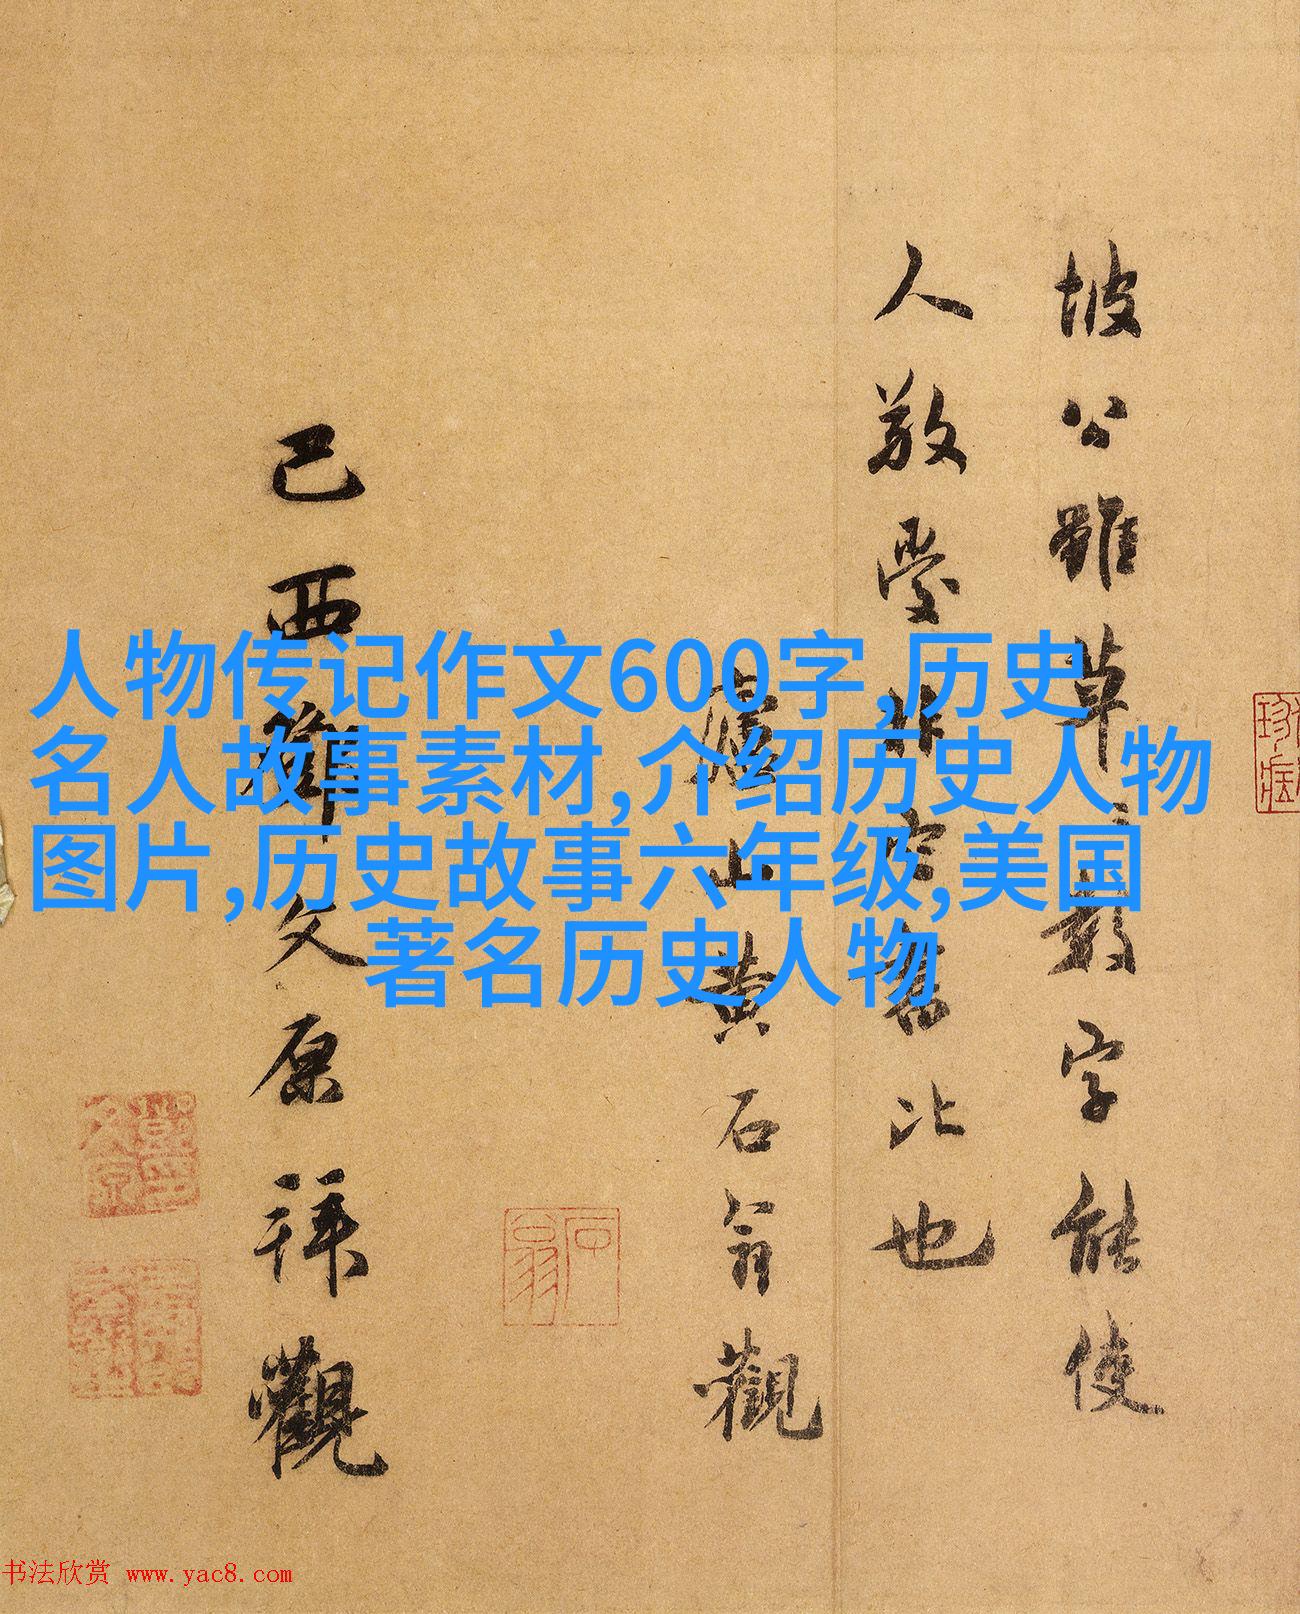 人物传记作文600字,历史
名人故事素材,介绍历史人物
图片,历史故事六年级,美国
著名历史人物
坡公雖草草數字能使
人敬愛非它書比也
山黄石翁觀
己酉鄧文原拜觀
石翁
书法欣赏 www.yac8.com